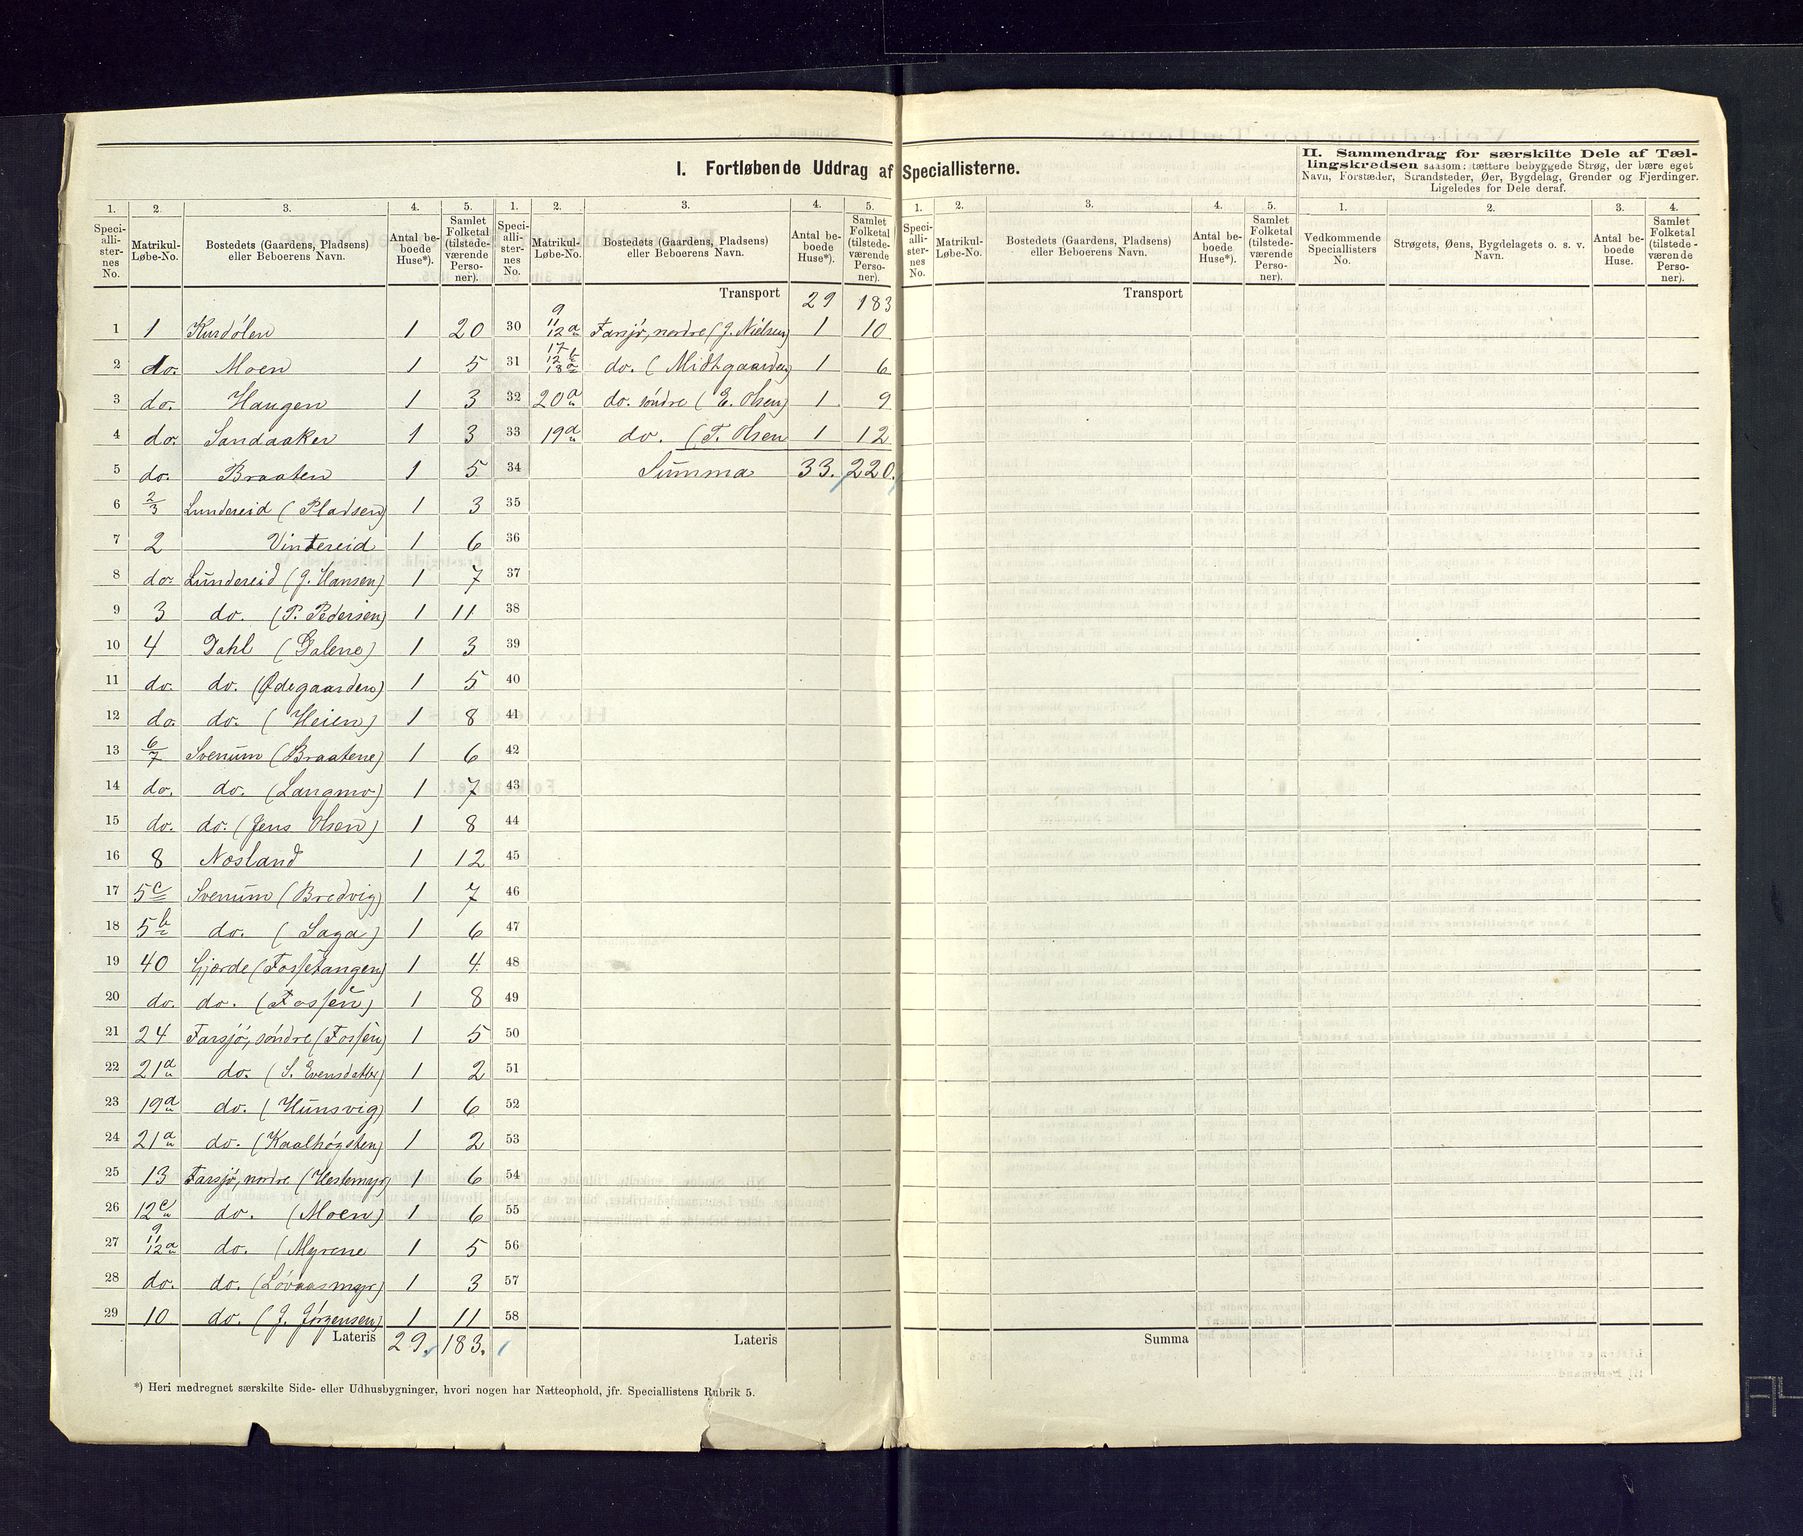 I. Fortløbende Uddrag af Speciallisterne.
II. Sammendrag for særskilte Dele af Tæl-
lingskredsen saasom: tættere bebyggede Strøg, der bære eget
Navn, Forstæder, Strandsteder, Øer, Bygdelag, Grender og Fjerdinger.
Ligeledes for Dele deraf.
1. 2. 3. 4. 5. 1. 2. 3. 4. 5. 1. 2. 3. 4. 5. 1. 2. 3. 4.
Speci-alli-ster-nes No. Matrikul-Løbe-No. Bostedets (Gaardens, Pladsens) eller Beboerens Navn. Antal be-boede Huse*). Samlet Folketal (tilstede-værende Perso-ner).
Speci-alli-ster-nes No. Matrikul-Løbe-No. Bostedets (Gaardens, Pladsens) eller Beboerens Navn. Antal be-boede Huse*). Samlet Folketal (tilstede-værende Perso-ner).
Speci-alli-ster-nes No. Matrikul-Løbe-No. Bostedets (Gaardens, Pladsens) eller Beboerens Navn. Antal be-boede Huse*). Samlet Folketal (tilstede-værende Perso-ner).
Vedkommende Speciallisters No. Strøgets, Øens, Bygdelagets o. s. v. Navn. Antal be-boede Huse. Samlet Folketal (tilstede-værende Perso-ner).
1 1 Kurdølen 1 20
2 do. Moen 1 5
3 do. Haugen 1 3
4 do. Sandaaker 1 3
5 do. Braaten 1 5
6 2/3 Lundereid (Pladsen) 1 3
7 2 Vintereid 1 6
8 do. Lundereid (J. Hansen) 1 7
9 3 do. (P. Pedersen) 1 11
10 4 Dahl (Galene) 1 3
11 do. do. (Ødegaarden) 1 5
12 do. do. (Heien) 1 8
13 6/7 Svenum (Braatene) 1 6
14 do. do. (Langmo) 1 7
15 do. do. (Jens Olsen) 1 8
16 8 Næsland 1 12
17 5c Svenum (Bredvig) 1 7
18 5b do. (Saga) 1 6
19 40 Gjærde (Fossetangen) 1 4
20 do. do. (Fossen) 1 8
21 24 Farsjø, søndre (Fossen) 1 5
22 21a do. (S. Evensdatter) 1 2
23 19a do. (Hunsvig) 1 6
24 21a do. (Kaalhøgsten) 1 2
25 13 Farsjø, nordre (Hestemyr) 1 6
26 12c do. (Moen) 1 6
27 9 11 12a do. (Myrene 1 5
28 do. do. (Løvaasmyr) 1 3
29 10 do. (J. Jørgensen) 1 11
Lateris 29. 183.
Transport 29 183
30 9 11 12a Farsjø, nordre (J. Nielsen) 1 10
31 17 12b 18a do. (Midtgaarden) 1 6
32 20a do. søndre (E. Olsen) 1 9
33 19a do. (T. Olsen 1 12
34 Summa 33. 220.
35
36
37
38
39
40
41
42
43
44
45
46
47
48
49
50
51
52
53
54
55
56
57
58
Lateris
Transport
Summa
*) Heri medregnet særskilte Side- eller Udhusbygninger, hvori nogen har Natteophold, jfr. Speciallistens Rubrik 5.